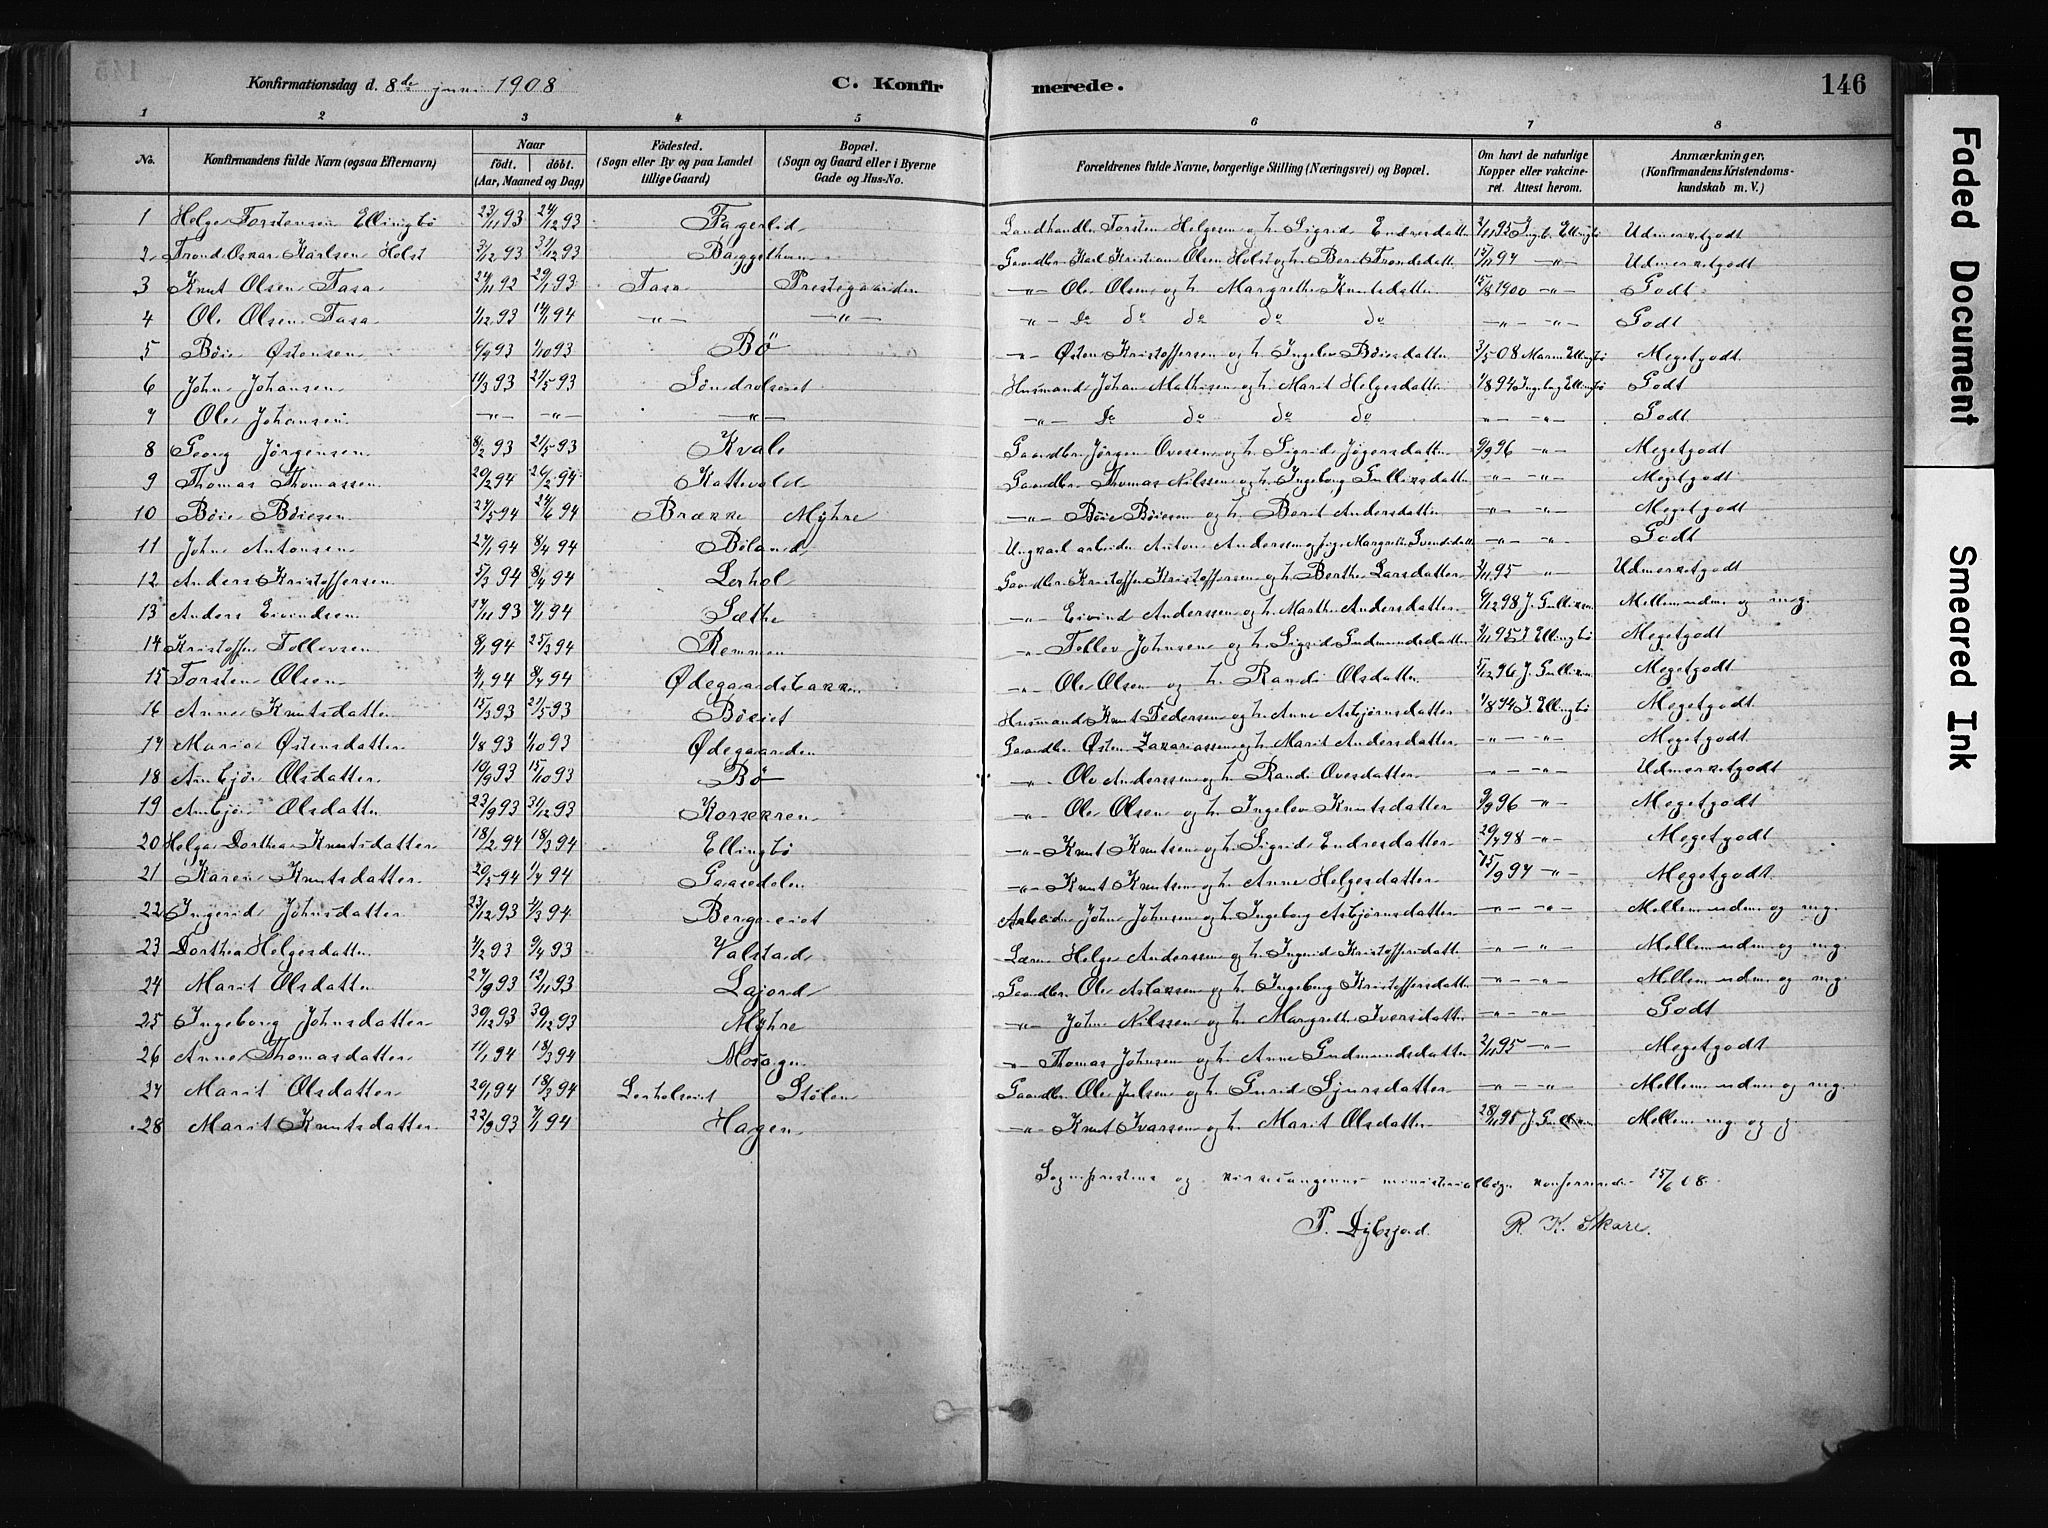 Konfirmationsdag d. 8de juni 1908 C. Konfirmerede. 146
1 2 3 4 5 6 7 8
No. Konfirmandens fulde Navn (ogsaa Efternavn) Naar født. døbt. (Aar, Maaned og Dag) Födested. (Sogn eller By og paa Landet tillige Gaard) Bopæl. (Sogn og Gaard eller i Byerne Gade og Hus-No. Forældrenes fulde Navne, borgerlige Stilling (Næringsvei) og Bopæl. Om havt de naturlige Kopper eller vakcineret. Attest herom. Anmærkninger. (Konfirmandens Kristendomskundskab m. V.)
1 Helge Torstensen Ellingbö 23/11 93 24/12 93 Fagerlid Landhandler Torsten Helgesen og h. Sigrid Endresdatter 2/11 95 Ingb. Ellingbö Udmerketgodt
2 Trond Oskar Karlsen Holst 3/12 93 31/12 93 Gaardbr. Karl Kristian Olsen Holst og h. Berit Trondsdatt 94 -"- Udmerketgodt
3 Knut Olsen Fasa 24/11 92 29/1 93 Fasa Prestegaarden -"- Ole Olsen og h. Margrethe Knutsdatter 15/8 1900 -"- Godt
4 Ole Olsen Fasa 1/12 93 14/1 94 -"- -"- -"- Do do do do do -"- -"- Godt
5 Böie Østensen 6/9 93 1/10 93 Bö -"- Østen Kristoffersen og h. Ingelev Böiesdatter 3/5 08 Maren Ellingbö Megetgodt
6 John Johansen 11/3 93 21/5 93 Husmand Johan Mathisen og h. Marit Helgesdatter 1/8 94 Ingebg Ellingbö Godt
7 Ole Johansen -"- -"- -"- -"- Do do do do -"- -"- Godt
8 Georg Jørgensen 8/2 93 21/5 93 Kvale Gaardbr. Jörgen Ovesen og h. Sigrid 9/9 96 -"- Megetgodt
9 Thomas Thomassen 20/2 94 Kattevold Gaardbr. Thomas Nilssen og h. Ingeborg Gulliksdatter -"- -"- Megetgodt
10 Böie Böiesen 27/5 94 24/6 94 Brække Myhre -"- Böie Böiesen og h. Berit Andersdatter -"- -"- Megetgodt
11 John Antonsen 27/1 94 8/4 94 Böland Ungkarl arbeider Anton Andersen og Margrethe Svendsdatt -"- -"- Godt
12 Anders Kristoffersen 5/3 94 8/4 94 Lerhol Gaardbr. Kristoffer Kristoffersen og h. Berthe Larsdatter 2/11 95 -"- Udmerketgodt
13 Anders Eivindsen 17/11 93 7/1 94 Sæthe -"- Eivind Anderssen og h. Marthe Andersdatter 6/12 98 J. Gulliksen Mellem udm. og mg.
14 Kristoffer Tollevsen 8/1 94 25/3 94 Remmen -"- Tollev Johnsen og h. Sigrid Gudmundsdatter 2/11 95 J. Ellingbö Megetgodt
15 Torsten Olsen 4/1 94 8/4 94 Ødegaardsbakken -"- Ole Olsen og h. Randi Olsdatter 5/12 96 J. Gulliksen Megetgodt
16 Anne Knutsdatter 15/3 93 21/5 93 Böeiet Husmand Knut Pedersen og h. Anne Asbjørnsdatter 1/8 94 J. Ellingbö Megetgodt
17 Maria Østensdatter 1/8 93 1/10 93 Ødegaarden Gaardbr. Østen Zakariassen og h. Marit Andersdatter -"- -"- Megetgodt
18 Anbjör Olsdatter 10/9 93 15/10 93 Bö -"- Ole Anderssen og h. Randi Ovesdatter -"- -"- Udmerketgodt
19 Anbjör Olsdatter 23/9 93 31/12 93 -"- Ole Olsen og h. Ingelev Knutsdatter 9/9 96 -"- Megetgodt
20 Helga Dorthea Knutsdatter 18/2 94 18/3 94 Ellingbö -"- Knut Knutsen og h. Sigrid Endresdatter 98 -"- Megetgodt
21 Karen Knutsdatter 94 1/4 94 Gaasedelen -"- Knut Knutsen og h. Anne Helgesdatter 15/9 94 -"- Megetgodt
22 Ingerid Johnsdatter 23/12 93 94 Bergseiet Arbeider John Johnsen og h. Ingeborg Asbjörnsdatter -"- -"- Mellem udm. og mg.
23 Dorthea Helgesdatter 7/2 93 9/4 93 Valstad Lærer Helge Anderssen og h. Ingerid Kristoffersdatt -"- " Mellem udm. og mg.
24 Marit Olsdatter 27/9 93 12/11 93 Lajord Gaardbr. Ole Aslaksen og h. Ingeborg Kristoffersdatter -"- -"- Mellem udm. og mg.
25 Ingeborg Johnsdatter 30/12 93 Myhre -"- John Nilssen og h. Margrethe Iversdatter -"- -"- Godt
26 Anne Thomasdatter 11/1 94 18/3 94 " Thomas Johnsen og h. Anne Gudmundsdatter 2/11 95 -"- Megetgodt
27 Marit Olsdatter 20/1 94 18/3 94 Lerholseiet Stölen Gaardbr. Ole Julsen og h. Gurid Sjursdatter -"- -"- Mellem udm. og mg.
28 Marit Knutsdatter 22/9 93 7/1 94 Hagen -"- Knut Ivarsen og h. Marit Olsdatter J. Gulliksen Mellem mg. og g.
Sogneprestens og kirkesangerens ministerialbøger konfererede 15/6 08.
P. Dybsjord. R. K. Skare.
Faded Document
Smeared Ink